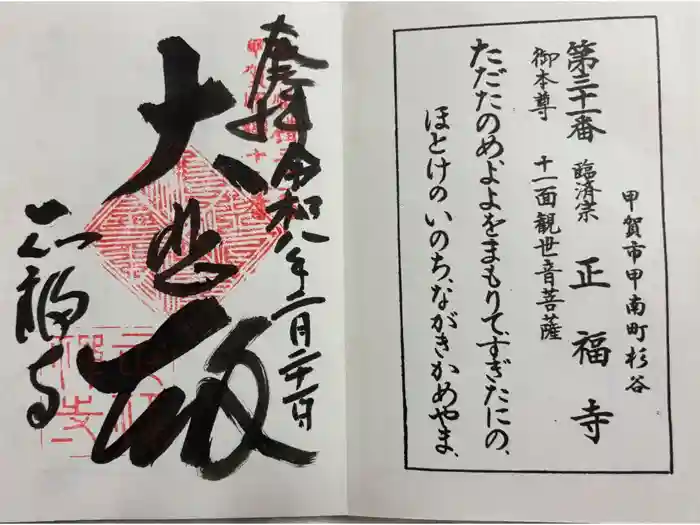 甲賀市甲南町杉谷
第三十一番 臨済宗 正福寺
御本尊 十一面観世音菩薩
ただたのめよよをまもりて、すぎたにの、
ほとけのいのち、ながきかめやま、
奉拝 令和八年二月二十一日
大悲殿
正福寺